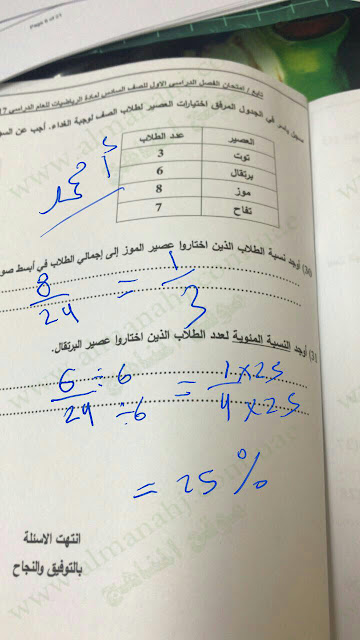 Page 8 of 21
تابع / امتحان الفصل الدراسي الأول للصف السادس لمادة الرياضيات للعام الدراسي 17
في الجدول المرفق اختيارات العصير لطلاب الصف لوجبة الغداء. أجب عن
العصير عدد الطلاب
توت 3
برتقال 6
موز 8
تفاح 7
30) أوجد نسبة الطلاب الذين اختاروا عصير الموز إلى إجمالي الطلاب في أبسط
8/24 = 1/3
31) أوجد النسبة المئوية لعدد الطلاب الذين اختاروا عصير البرتقال.
6 ÷ 6 / 24 ÷ 6 = 1 × 25 / 4 × 25
= 25 %
انتهت الاسئلة
بالتوفيق والنجاح
www.almanahj.com
موقع المناهج